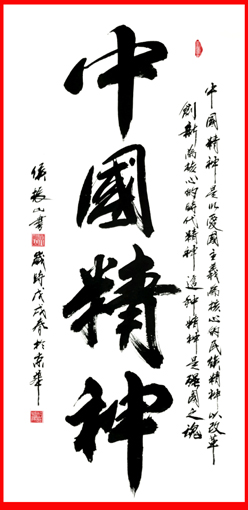 中國精神是以愛國主義為核心的民族精神以改革
創新為核心的時代精神 這種精神是強國之魂
中國精神
山書 歲時戊戌春於京華